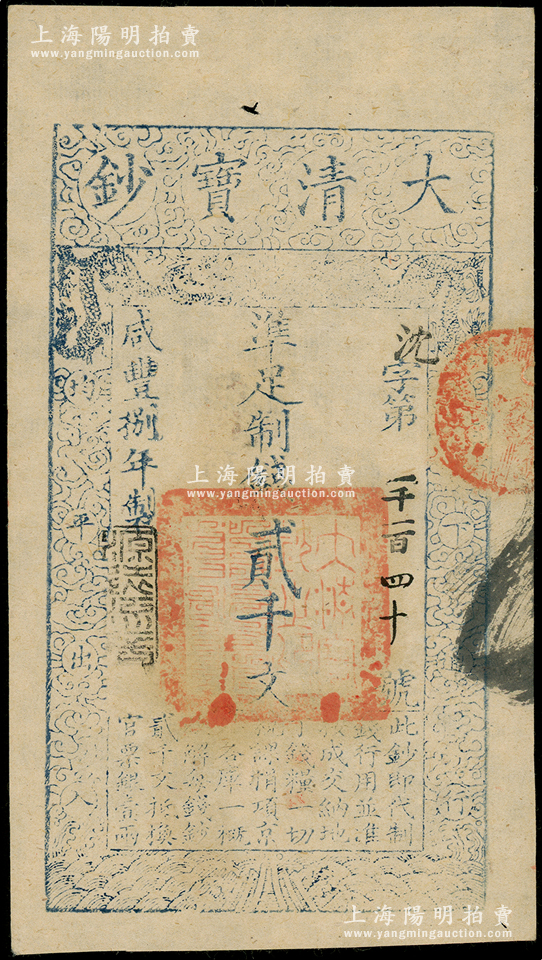 上海陽明拍賣
www.yangmingauction.com
大清寶鈔
沈字第 一千一百四十 號
準足制錢貳千文
咸豐捌年製
此鈔即代制
錢行用並准
成交納地
錢糧一切
課捐項京
各庫一概
解每錢鈔
貳千文抵換
官票銀壹兩
下
行
均
平
出
入
上海陽明拍賣
www.yangmingauction.com
上海陽明拍賣
www.yangmingauction.com